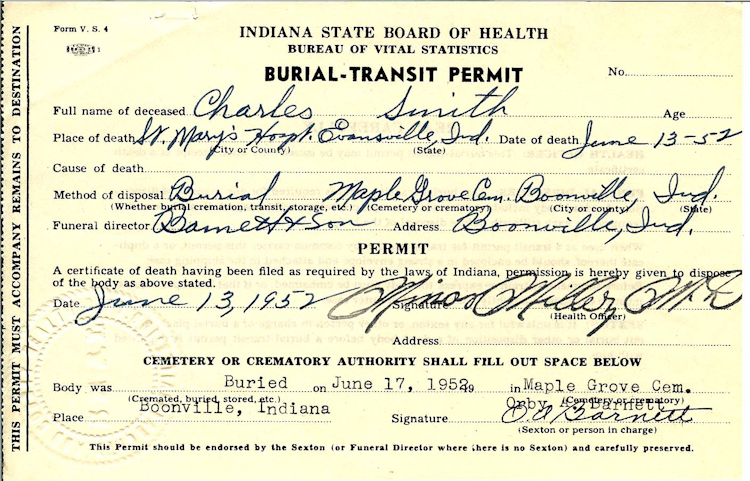 Form V. S. 4
INDIANA STATE BOARD OF HEALTH
BUREAU OF VITAL STATISTICS
BURIAL-TRANSIT PERMIT
No.
Full name of deceased Charles Smith Age
Place of death St. Mary's Hospt. Evansville, Ind. Date of death June 13-52
(City or County) (State)
Cause of death
Method of disposal Burial Maple Grove Cem. Boonville, Ind.
(Whether burial cremation, transit, storage, etc.) (Cemetery or crematory) (City or county) (State)
Funeral director Barnett & Son Address Boonville, Ind.
PERMIT
A certificate of death having been filed as required by the laws of Indiana, permission is hereby given to dispose
of the body as above stated.
Date June 13, 1952 Signature Minor Miller M.D.
(Health Officer)
Address
CEMETERY OR CREMATORY AUTHORITY SHALL FILL OUT SPACE BELOW
Body was Buried on June 17, 1952, in Maple Grove Cem.
(Cremated, buried, stored, etc.) (Cemetery or crematory)
Orby A. Barnett
Place Boonville, Indiana Signature O A Barnett
(Sexton or person in charge)
This Permit should be endorsed by the Sexton (or Funeral Director where there is no Sexton) and carefully preserved.
THIS PERMIT MUST ACCOMPANY REMAINS TO DESTINATION